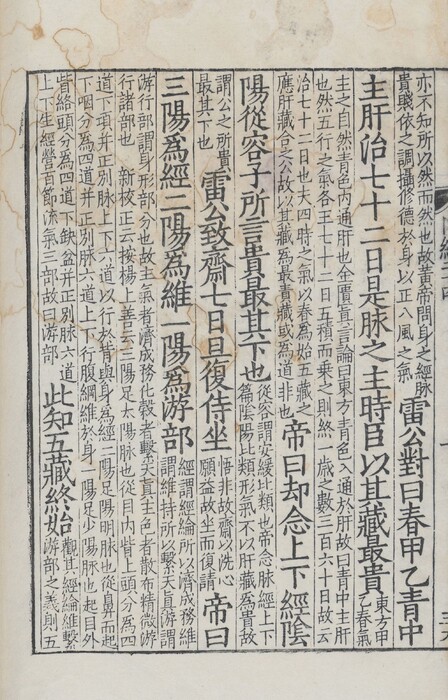 亦不知所以然而然也故黃帝問身之經脉
貴賤依之調攝修德於身以正八風之氣
雷公對曰春甲乙青中
主肝治七十二日是脉之主時臣以其藏最貴
東方甲
乙春氣
主之自然青色内通肝也金匱真言論曰東方青色入通於肝故曰青中主肝
也然五行之氣各王七十二日五積而乘之則終一歲之數三百六十日故云
治七十二日也夫四時之氣以春為始五藏之
應肝藏合之公故以其藏為最貴藏或為道非也
帝曰却念上下經陰
陽從容子所言貴最其下也
從容謂安緩比類也帝念脉經上下
篇陰陽比類形氣不以肝藏為貴故
謂公之所貴
最其下也
雷公致齋七日旦復侍坐
悟非故齋以洗心
願益故坐而復請
帝曰
三陽為經二陽為維一陽為游部
經謂經綸所以濟成務維
謂維持所以繫天真游謂
游行部謂身形部分也故主氣者濟成務化穀者繫天真主色者散布精微游
行諸部也 新校正云按楊上善云三陽足太陽脉也從目内眥上頭分為四
道下項并正别脉上下六道以行於背與身為經二陽足陽明脉也從鼻而起
下咽分為四道并正别脉六道上下行腹綱維於身一陽足少陽脉也起目外
眥絡頭分為四道下缺盆并正别脉六道
上下生經營百節流氣三部故曰游部
此知五藏終始
觀其經綸維繫
游部之義則五